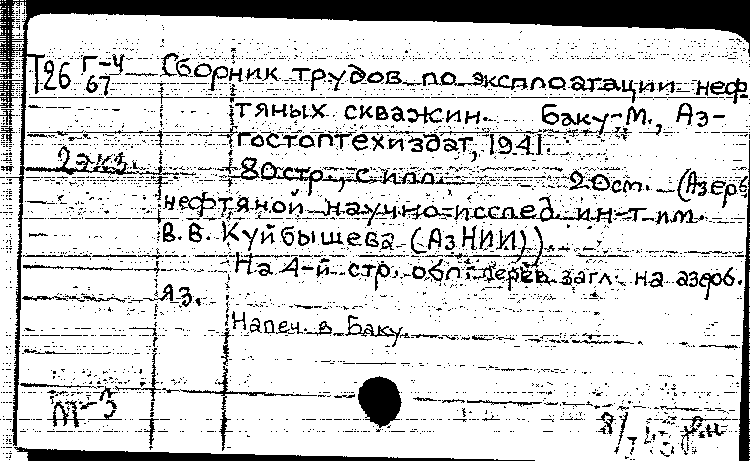 Т26 Г-4 Сборник трудов по эксплоатации неф-
67
тяных скважин. Баку-М., Аз-
гостоптехиздат, 1941.
2 экз.
80стр., с илл. 20см. (Азерб
нефтяной научно-исслед. ин-т им.
В. В. Куйбышева (АзНИИ)).
На 4-й стр. обл. перев. загл. на азерб.
яз.
Напеч. в Баку.
М-3
8/